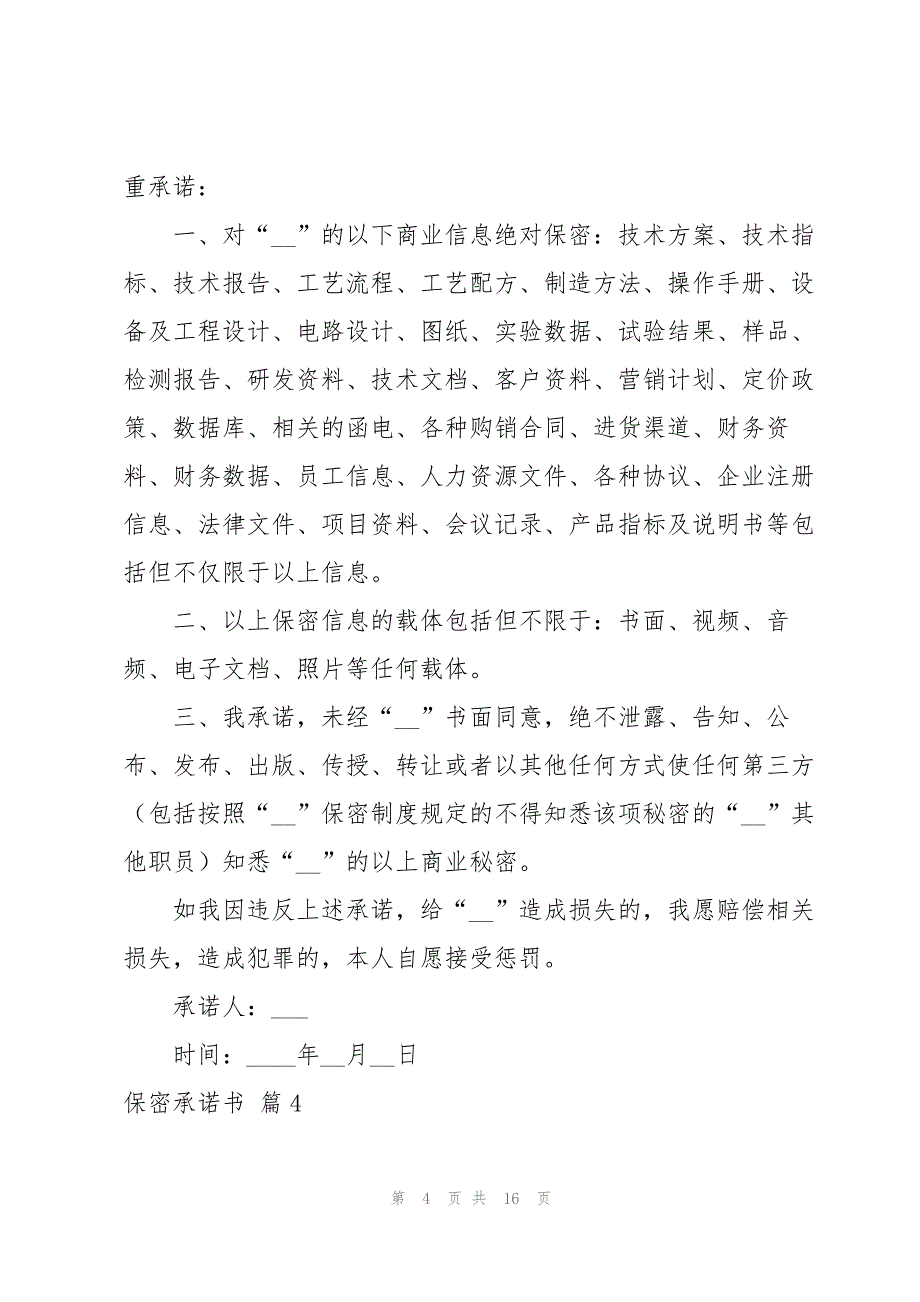 重承诺：
一、对“__”的以下商业信息绝对保密：技术方案、技术指
标、技术报告、工艺流程、工艺配方、制造方法、操作手册、设
备及工程设计、电路设计、图纸、实验数据、试验结果、样品、
检测报告、研发资料、技术文档、客户资料、营销计划、定价政
策、数据库、相关的函电、各种购销合同、进货渠道、财务资
料、财务数据、员工信息、人力资源文件、各种协议、企业注册
信息、法律文件、项目资料、会议记录、产品指标及说明书等包
括但不仅限于以上信息。
二、以上保密信息的载体包括但不限于：书面、视频、音
频、电子文档、照片等任何载体。
三、我承诺，未经“__”书面同意，绝不泄露、告知、公
布、发布、出版、传授、转让或者以其他任何方式使任何第三方
（包括按照“__”保密制度规定的不得知悉该项秘密的“__”其
他职员）知悉“__”的以上商业秘密。
如我因违反上述承诺，给“__”造成损失的，我愿赔偿相关
损失，造成犯罪的，本人自愿接受惩罚。
承诺人：___
时间：____年__月__日
保密承诺书 篇4
第 4 页 共 16 页